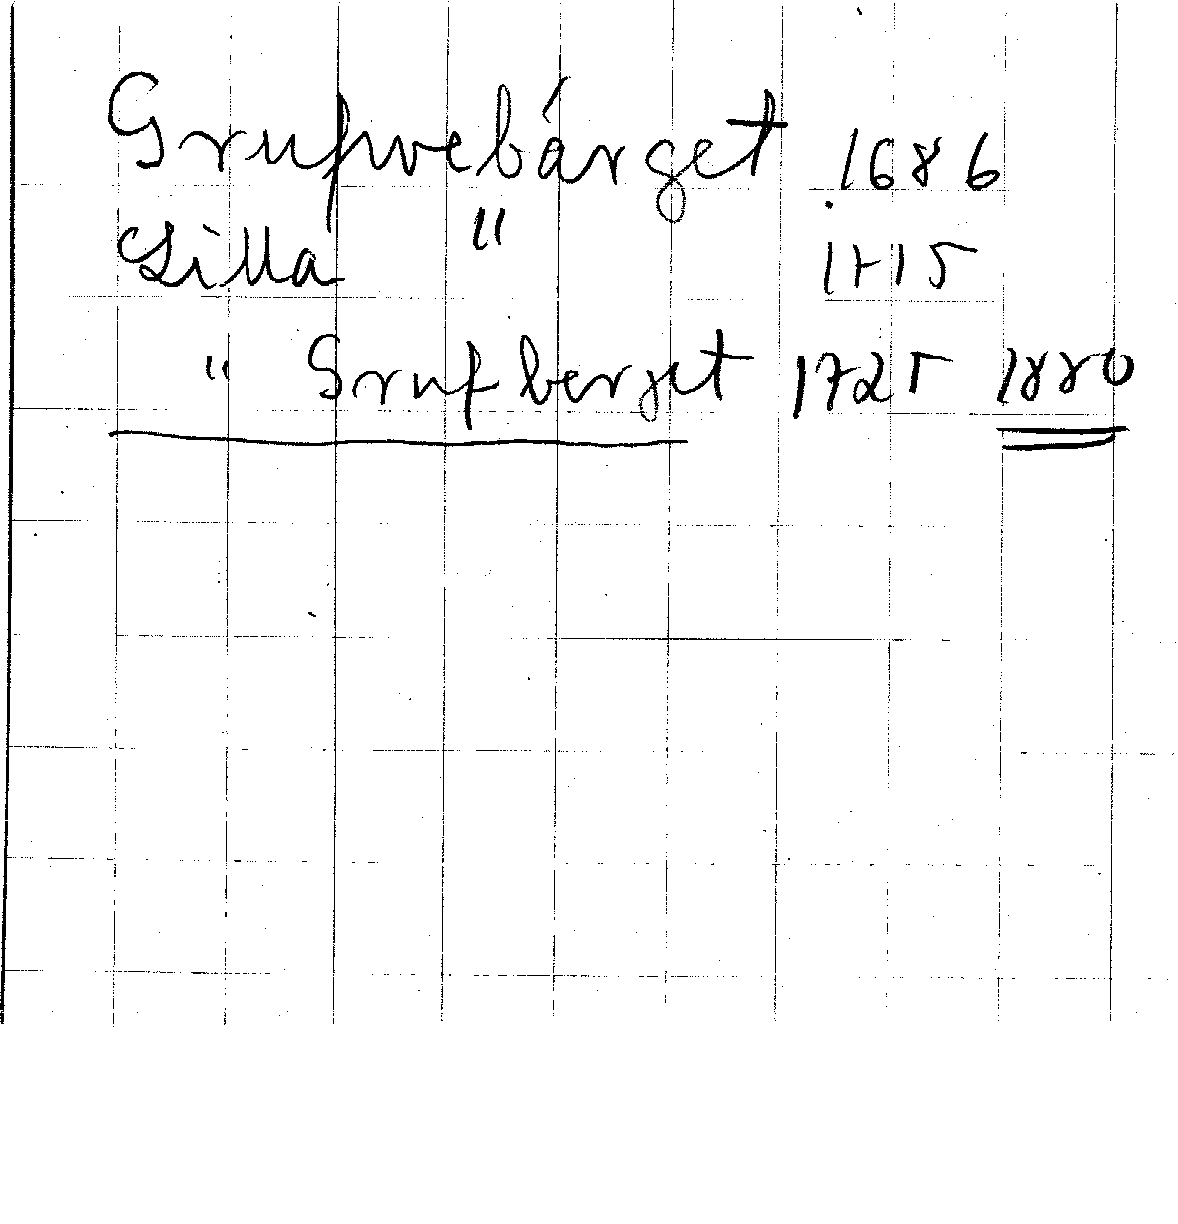 Grufwebärget 1686
Lilla " 1715
" Grufberget 1725 1880